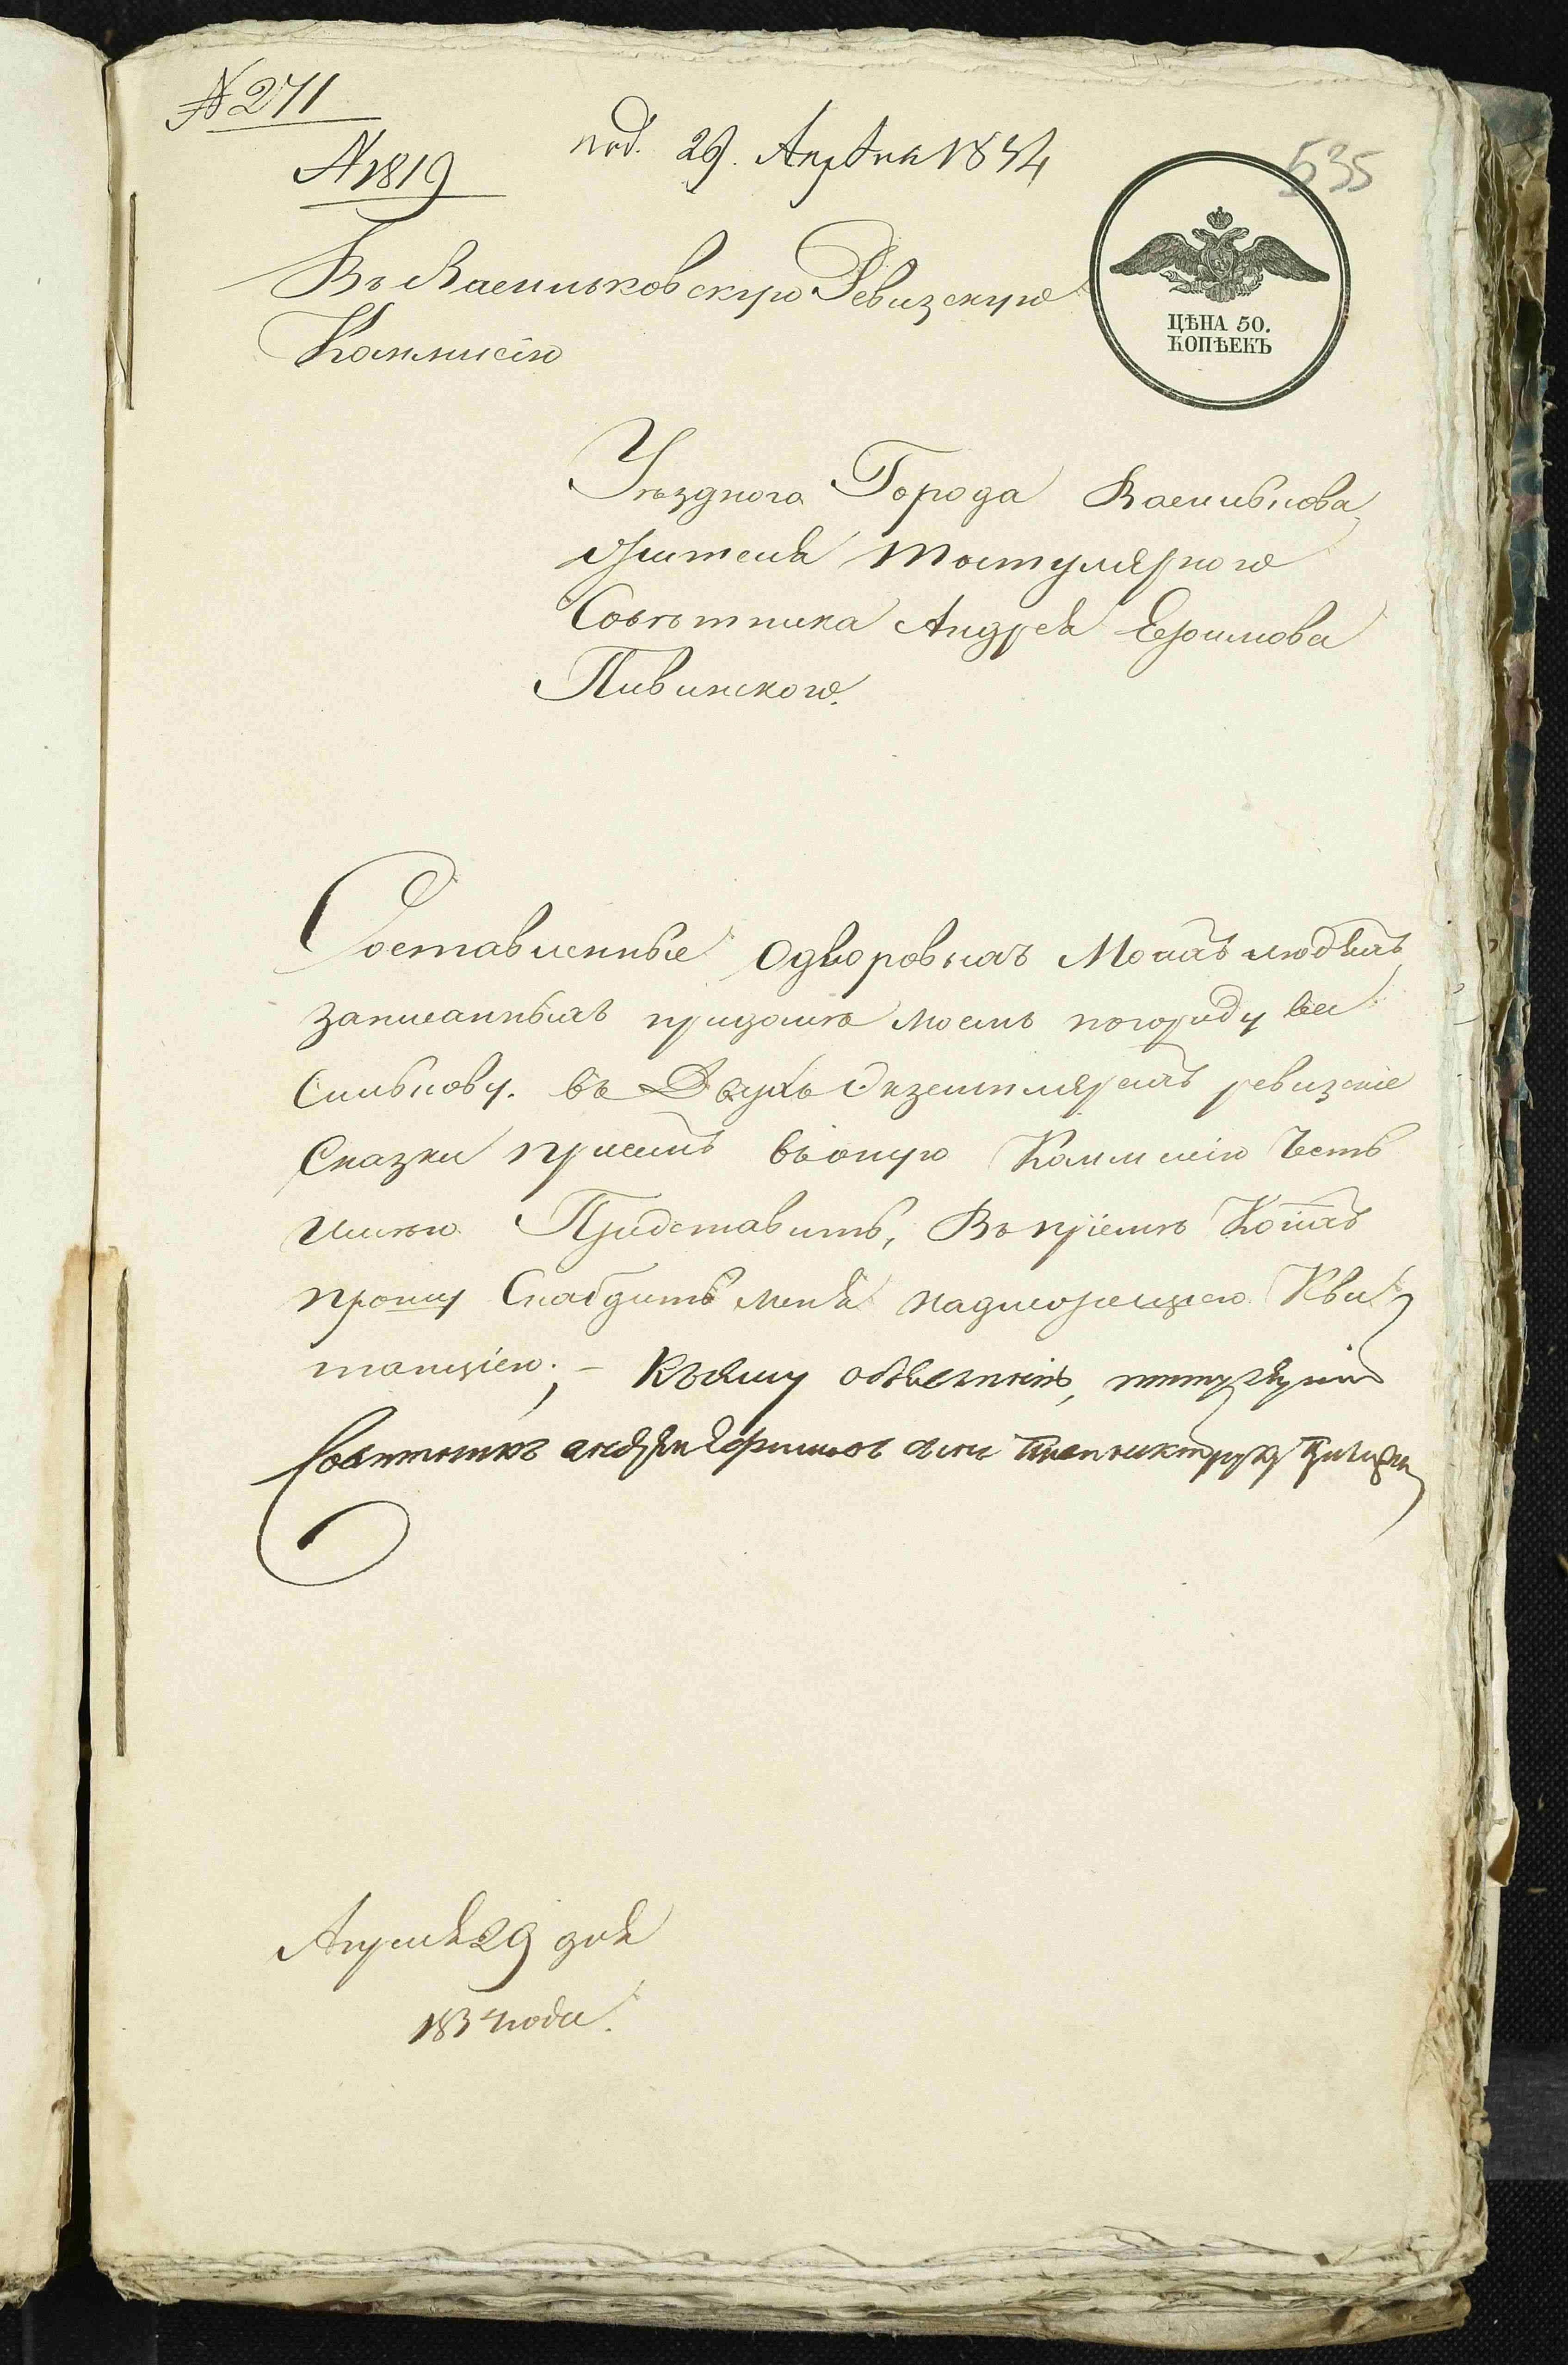 № 271
№ 1819
под. 29. Апреля 1834
535
Въ Васильковскую Ревизскую
Коммисію
ЦѢНА 50.
КОПѢЕКЪ
Уѣзднаго Города Василькова,
жителя титулярного
Совѣтника Андрея Ефимова
Пивинского.
Составленные одворовыхъ Моихъ людяхъ,
записанныхъ придомѣ моемъ погороду Ва
Силькову. въ Двухъ Экземплярахъ ревизскіе
Сказки присемъ въоную Коммисію Честь
имѣю Представить, Въпріемѣ Коихъ
прошу Снабдить меня надлежащею Кви
танціею; – Късему объясненію, титулярній
Совѣтникъ андрей Ефимовъ сынъ
Апреля 29 дня
1834 года.